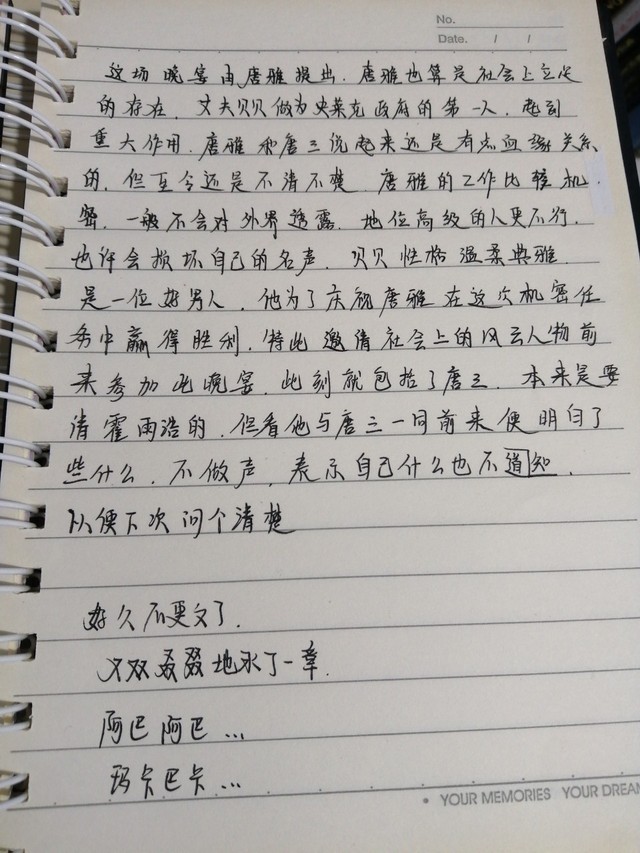 No.
Date. / /
这场晚宴由唐雅提出.唐雅也算是社会上立足
的存在.丈夫贝贝做为史莱克政府的第一人.起到
重大作用.唐雅和唐三说起来还是有点血缘关系
的.但至今还是不清不楚.唐雅的工作比较机
密.一般不会对外界透露.地位高级的人更不行.
也许会损坏自己的名声.贝贝性格温柔典雅.
是一位好男人.他为了庆祝唐雅在这次机密任
务中赢得胜利.特此邀请社会上的风云人物前
来参加此晚宴.此刻就包括了唐三.本来是要
请霍雨浩的.但看他与唐三一同前来便明白了
些什么.不做声.表示自己什么也不道知.
以便下次问个清楚
好久不更文了.
又双叒叕地水了一章.
阿巴阿巴...
玛卡巴卡...
• YOUR MEMORIES YOUR DREAM